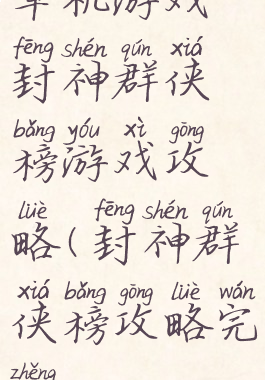 单机游戏
fēng shén qún xiá
封神群侠
bǎng yóu xì gōng
榜游戏攻
lüè fēng shén qún
略(封神群
xiá bǎng gōng lüè wán
侠榜攻略完
zhěng